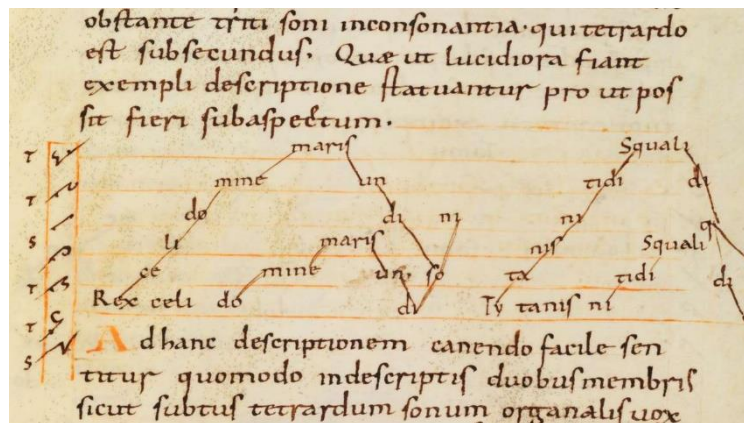 obstante triti soni inconsonantia· qui tetrardo
est subsecundus· Quæ ut lucidiora fiant
exempli descriptione statuantur pro ut pos
sit fieri sub aspectum·
T maris Squali
T mine un tidi di
T do di ni ni
S li maris nis Squali q
T ce mine un, so ta tidi di
T Rex celi do di Ty tanis ni
S
Ad hanc descriptionem canendo facile sen
titur quomodo in descriptis duobus membris
sicut subtus tetrardum sonum organalis uox